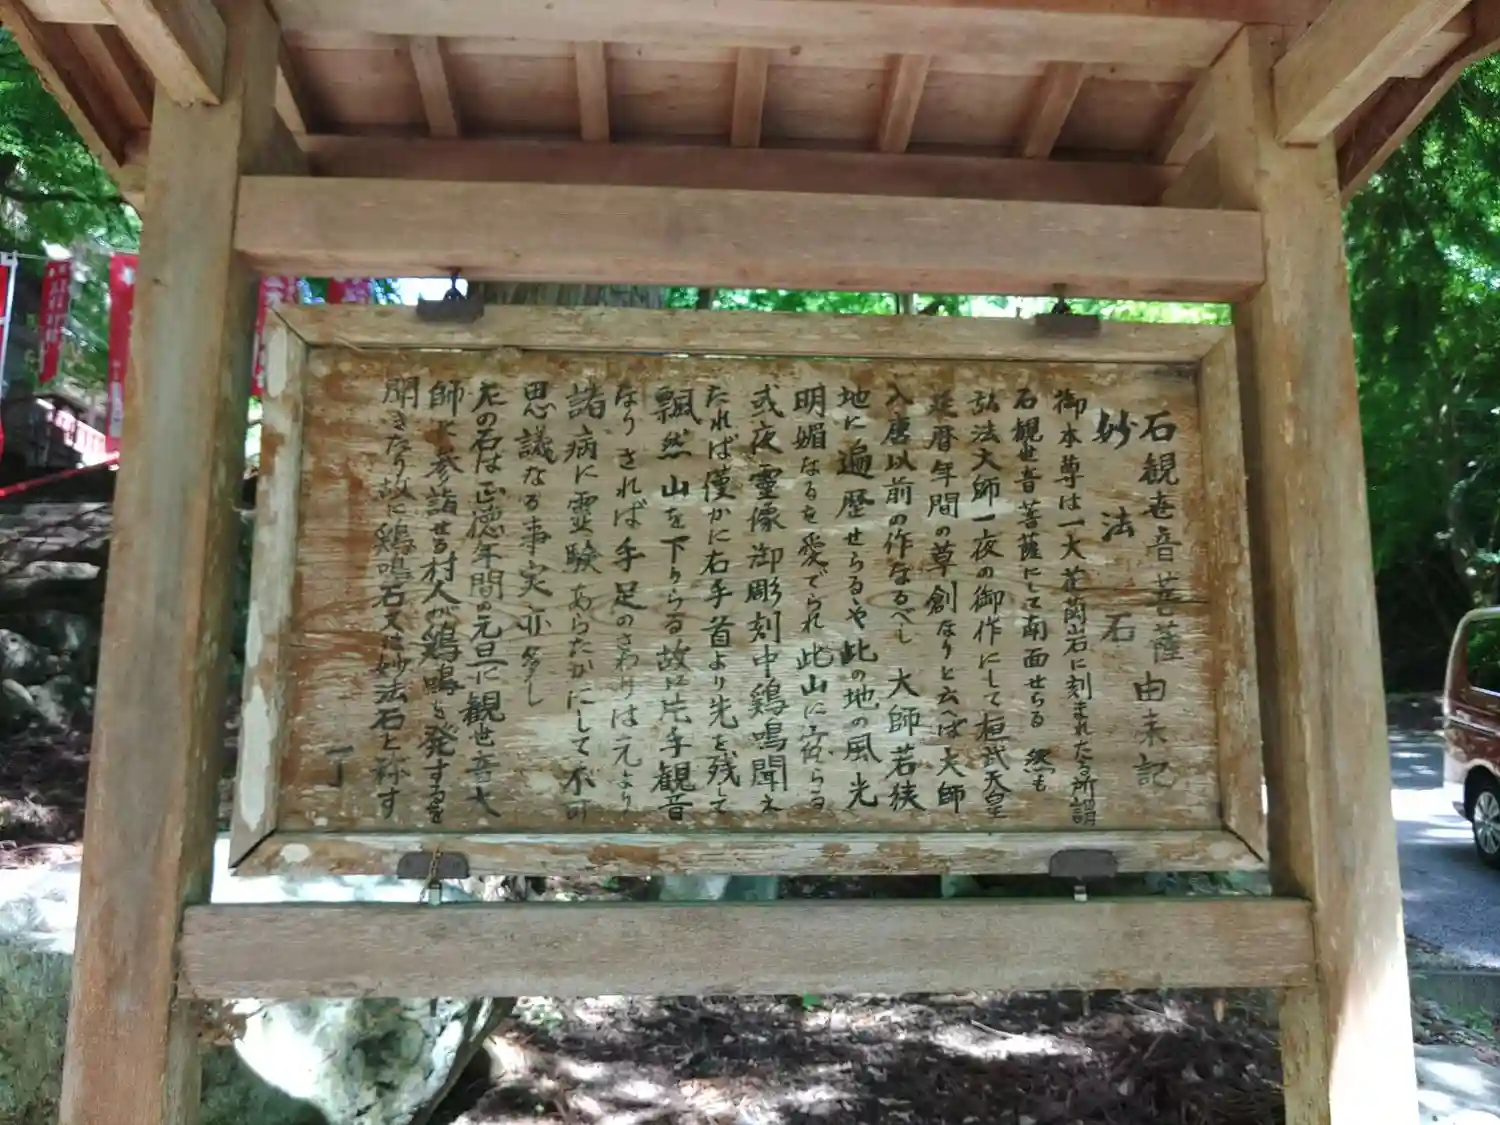 石観世音菩薩由来記
妙法石
御本尊は一大花崗岩に刻まれたる所謂
石観世音菩薩にして南面せらる 然も
弘法大師一夜の御作にして桓武天皇
延暦年間の草創なりと云へば大師
入唐以前の作なるべし 大師若狭
地に遍歴せらるや此の地の風光
明媚なるを愛でられ此山に宿らる
或夜霊像御彫刻中鶏鳴聞え
たれば僅かに右手首より先を残して
飄然山を下りらる故に片手観音
なり されば手足のさわりは元より
諸病に霊験あらたかにして不可
思議なる事実亦多し
左の石は正徳年間の元旦に観世音大
師に参詣せる村人が鶏鳴を発するを
聞きたり故に鶏鳴石又は妙法石と称す